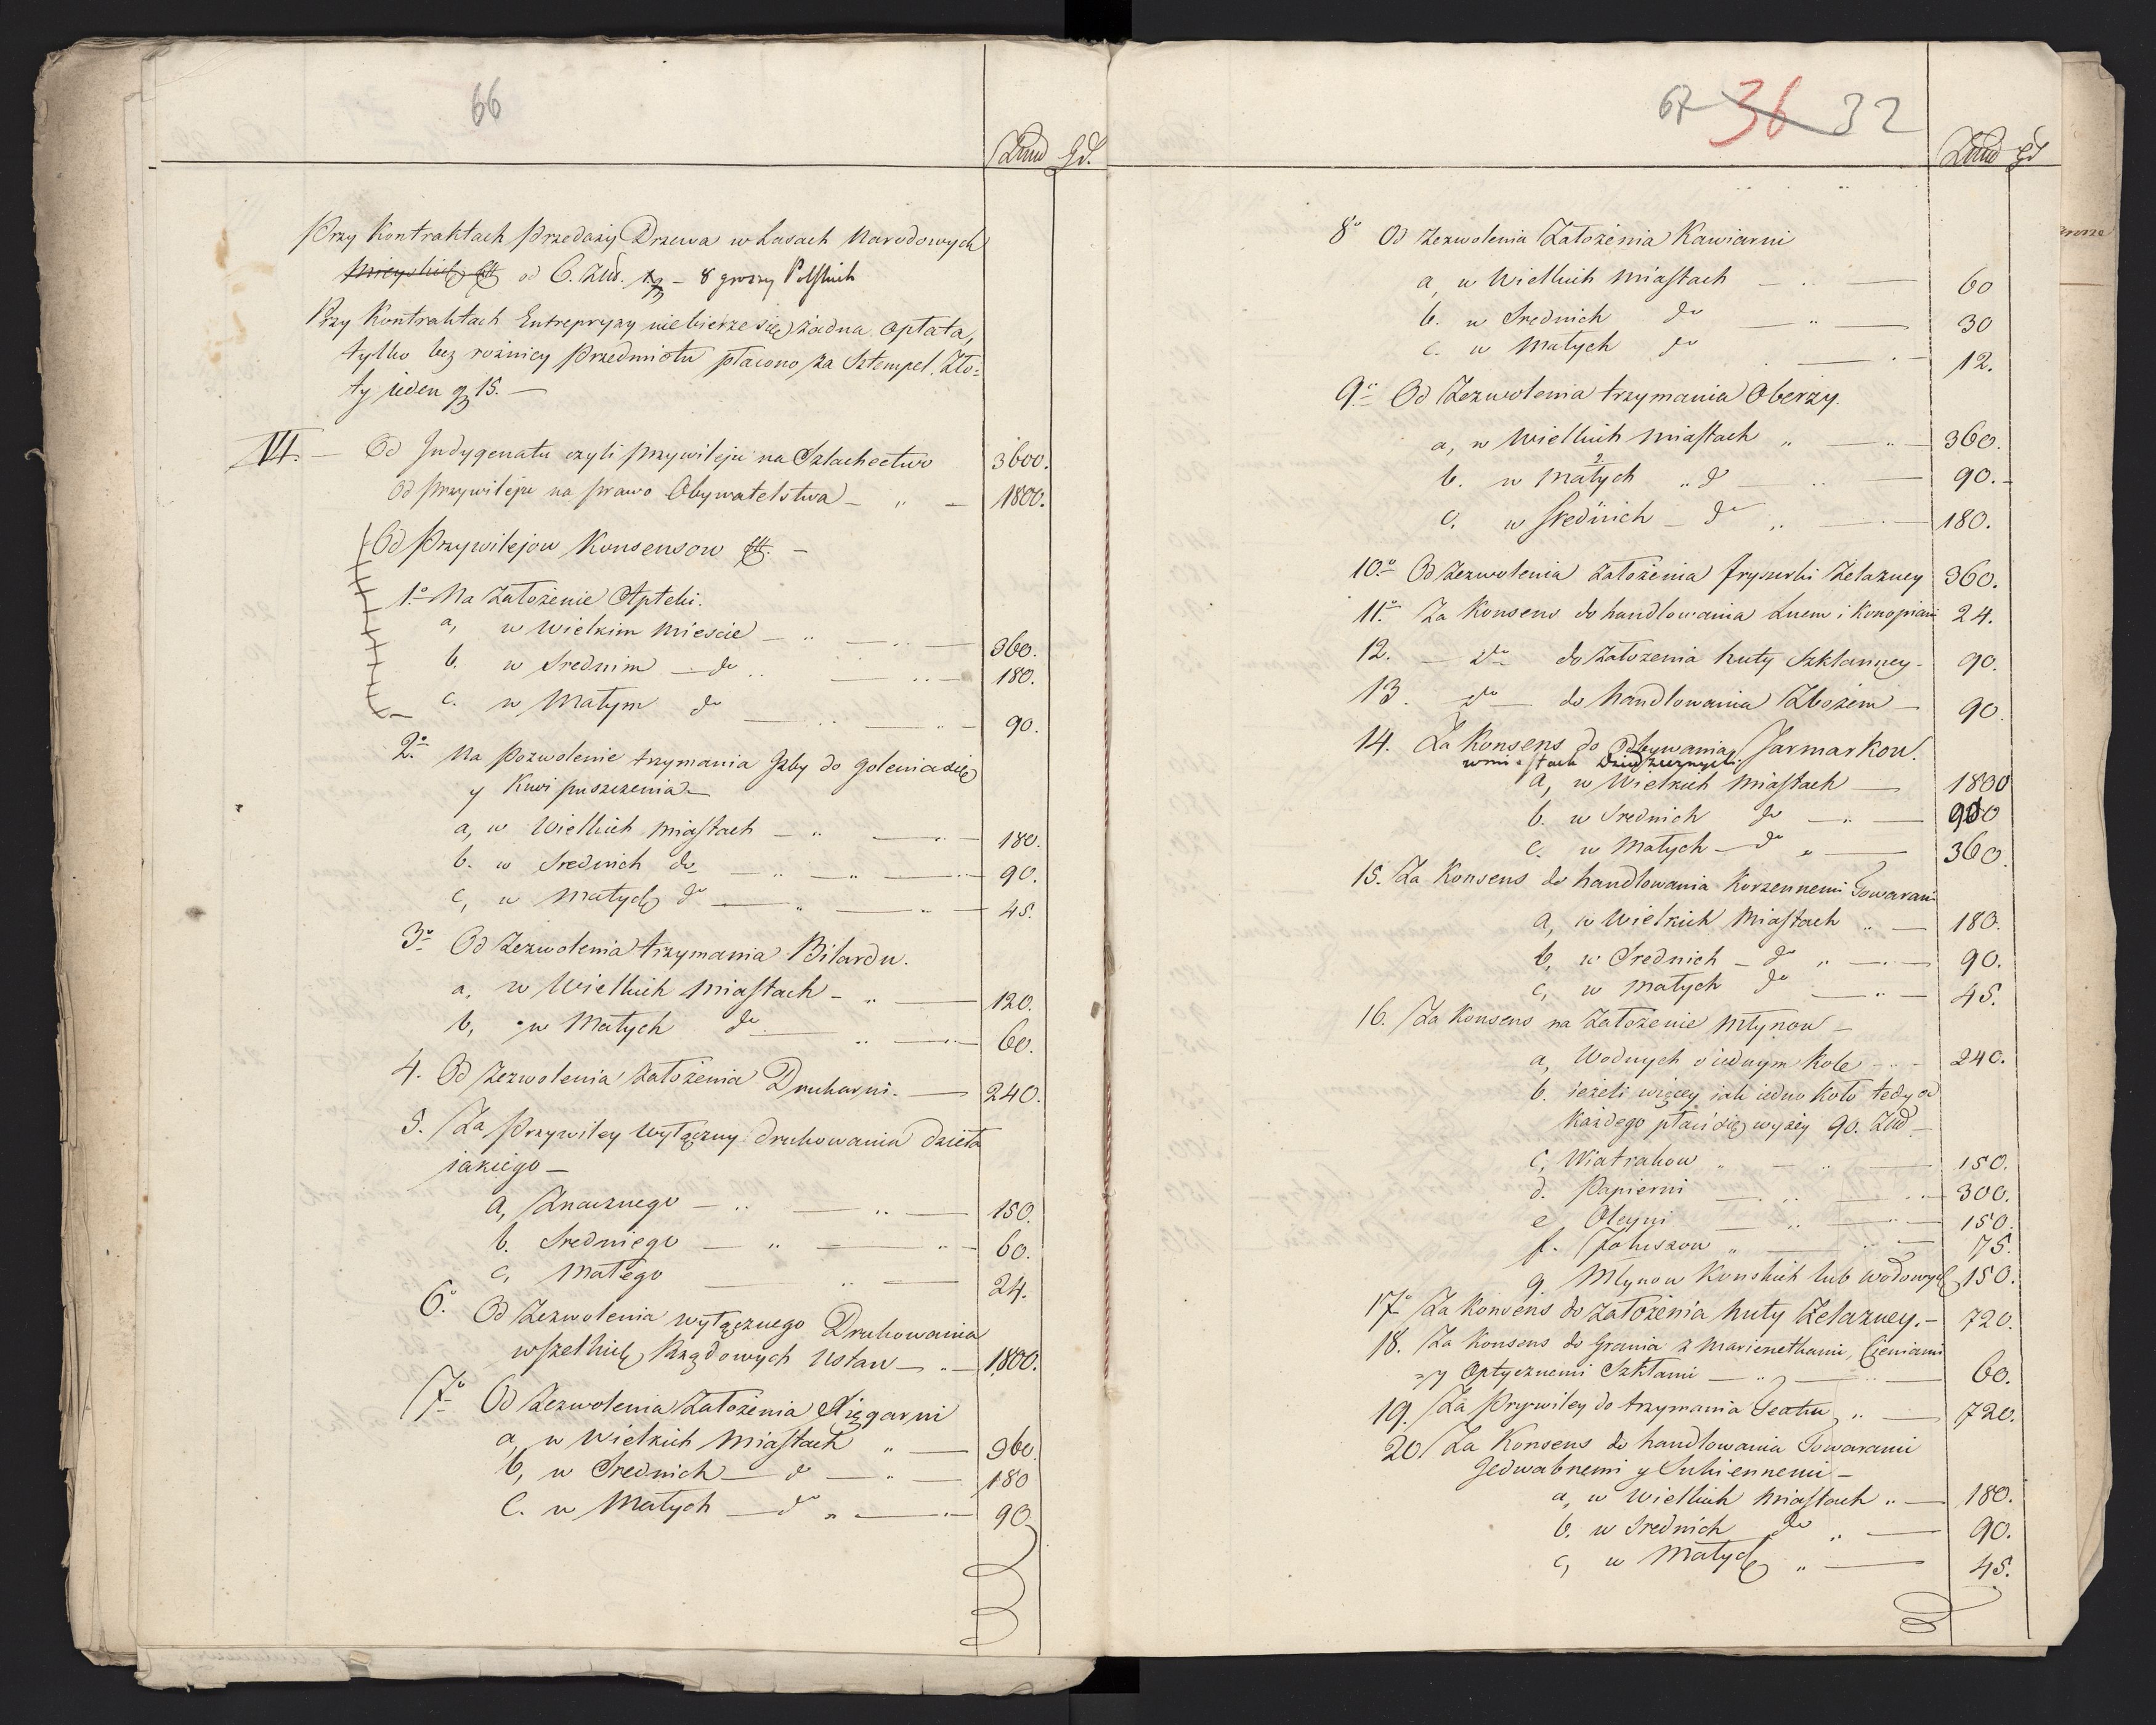 66
Złud gd.
Przy Kontraktach Przedaży Drzewa w Lasach Narodowych
od 6. Złud. 8 groszy Polskich
Przy Kontraktach Entrepryzy niebierze się żadna Opłata,
tylko bez rożnicy Przedmiotu płacono za Sztempel Zło-
ty ieden gr 15. —
VI. — Od Indygenatu czyli Przywileju na Szlachectwo 3600.
Od Przywileju na Prawo Obywatelstwa — „ — 1800.
Od Przywilejow Konsensow etc. —
1o Na Założenie Apteki.
a, w Wielkim Mieście — „ — 360.
b. w Srednim — do „ — 180.
c. w Małym do — 90.
2o Na Pozwolenie trzymania Izby do golenia się
y Krwi puszczenia —
a, w Wielkich Miastach — „ — 180.
b. w Srednich do — „ — 90.
c, w Małych do — „ — 45.
3o Od Zezwolenia trzymania Bilardu.
a. w Wielkich Miastach — „ — 120.
b, w Małych do — „ — 60.
4. Od Zezwolenia założenia Drukarni. — 240.
5. Za Przywiley Wyłączny drukowania dzieła
jakiego —
a, Znacznego — „ — 150.
b. Sredniego — „ — 60.
c, Małego — „ — 24.
6o Od Zezwolenia wyłącznego Drukowania
wszelkich Rządowych Ustaw — „ — 1800.
7o Od Zezwolenia Założenia Xięgarni
a, w Wielkich Miastach „ — 360.
b, w Srednich — do — „ — 180
c. w Małych — do „ — 90
67 36 32
Złud gd
8o Od Zezwolenia Założenia Kawiarni
a, w Wielkich Miastach — „ — 60
b. w Srednich do — „ — 30
c. w Małych do — 12.
9o Od Zezwolenia trzymania Oberzy.
a, w Wielkich Miastach „ — „ — 360.
2.
b. w Małych „ do — 90. —
c. w Srednich — do „ — 180.
10o Od Zezwolenia założenia fryszerki Żelazney 360.
11o Za Konsens do handlowania Lnem i Konopiami 24.
12. — dto do Założenia huty Szklanney — 90.
13. dto — do handlowania Zbożem — 90.
14. Za Konsens do Odbywania Jarmarkow.
w miastach
a, w Wielkich Miastach — 1800
b. w Srednich do — „ — 900
c. w Małych — do „ — 360.
15. Za Konsens do handlowania Korzennemi Towarami
a, w Wielkich Miastach „ — 180.
b, w Srednich — do „ — 90.
c, w Małych do — „ — 45.
16. Za Konsens na Założenie Młynow —
a, Wodnych o iednym Kole — 240.
b. ieżeli więcey iak iedno Koło tedy od
Każdego płaci się wyżey 90. Złud —
c, Wiatrakow „ — „ — 150.
d. Papierni — „ — 300.
e, Oleyni — „ — 150.
f. Foluszow „ — 75.
g. Młynow Konskich lub wołowych 150.
17o Za Konsens do założenia huty Żelazney. — 720.
18. Za Konsens do Grania z Marienetkami, Cieniami
y Optycznemi Szkłami — „ — 60.
19. Za Prywiley do trzymania Teatru „ — 720.
20. Za Konsens do handlowania Towarami
Jedwabnemi y Sukiennemi —
a, w Wielkich Miastach „ — 180.
b. w Srednich do „ — 90.
c, w Małych „ — 45.